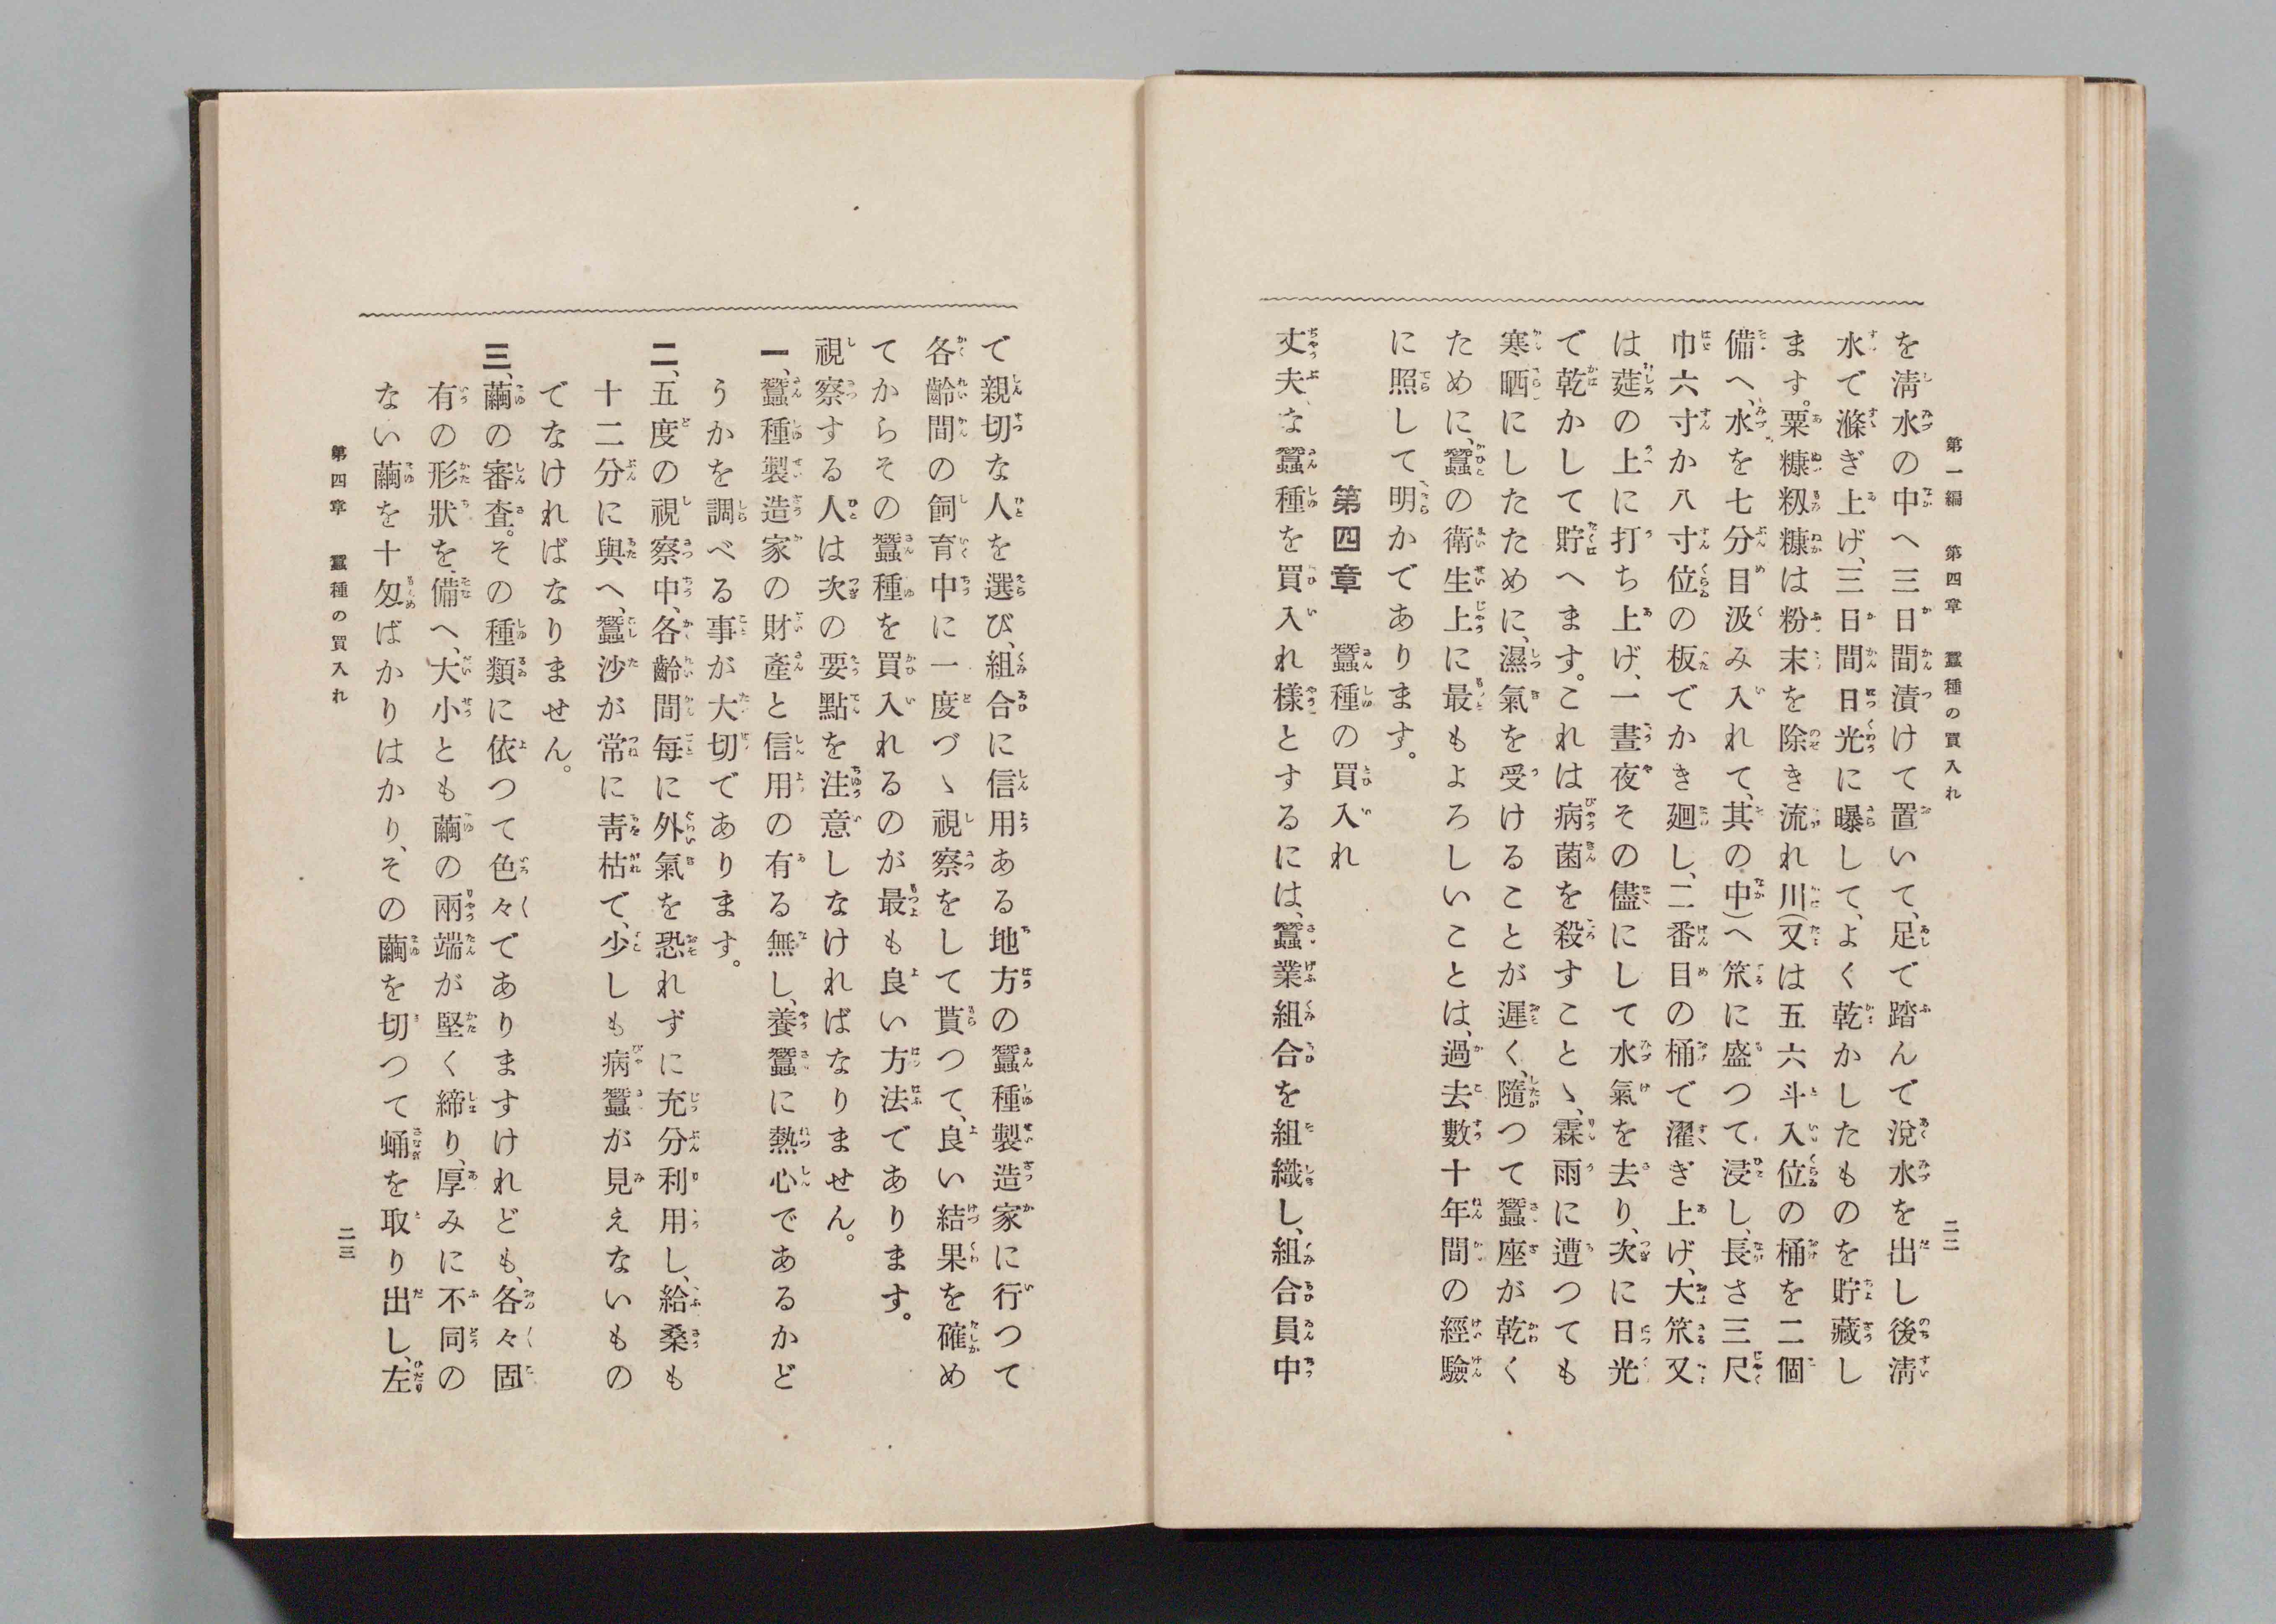 第一編　第四章　蠶種の買入れ
二二
を淸水の中へ三日間漬けて置いて、足で踏んで涗水を出し後淸
水で滌ぎ上げ、三日間日光に曝して、よく乾かしたものを貯藏し
ます。粟糠籾糠は粉末を除き流れ川（又は五六斗入位の桶を二個
備へ、水を七分目汲み入れて、其の中）へ笊に盛つて浸し、長さ三尺
巾六寸か八寸位の板でかき廻し、二番目の桶で濯ぎ上げ、大笊又
は、莚の上に打ち上げ、一晝夜その儘にして水氣を去り、次に日光
で乾かして貯へます。これは病菌を殺すことゝ、霖雨に遭つても
寒晒にしたために、濕氣を受けることが遲く、隨つて蠶座が乾く
ために、蠶の衛生上に最もよろしいことは、過去數十年間の經驗
に照して明かであります。
第四章　蠶種の買入れ
丈夫な蠶種を買入れ樣とするには、蠶業組合を組織し、組合員中
で親切な人を選び、組合に信用ある地方の蠶種製造家に行つて
各齡間の飼育中に一度づゝ視察をして貰つて、良い結果を確め
てからその蠶種を買入れるのが最も良い方法であります。
視察する人は次の要點を注意しなければなりません。
一、蠶種製造家の財產と信用の有る無し、養蠶に熱心であるかど
うかを調べる事が大切であります。
二、五度の視察中、各齡間每に外氣を恐れずに充分利用し、給桑も
十二分に與へ、蠶沙が常に靑枯で、少しも病蠶が見えないもの
でなければなりません。
三、繭の審査。その種類に依つて色々でありますけれども、各々固
有の形狀を備へ、大小とも繭の兩端が堅く締り、厚みに不同の
ない繭を十匁ばかりはかり、その繭を切つて蛹を取り出し、左
第四章　蠶種の買入れ
二三